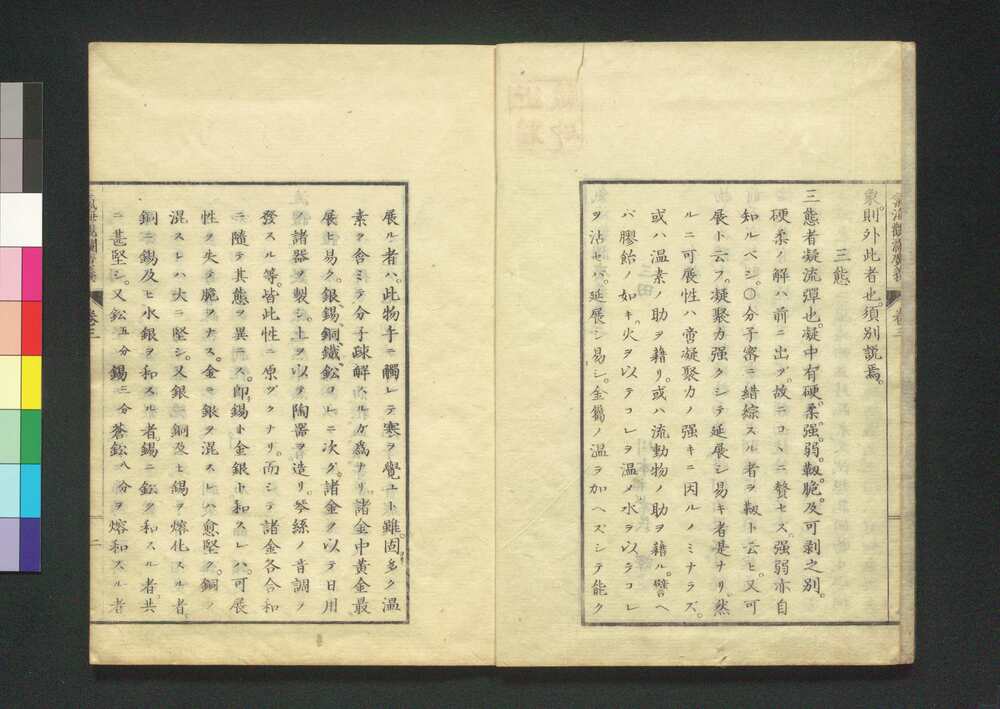 象則外此者也。須別說焉。
三態
三態者凝流彈也。凝中有硬。柔。强。弱。靱。脆。及可剥之別。
硬柔ノ解ハ前ニ出ヅ。故ニコヽニ贅セス。强弱亦自
知ルベシ。○分子密ニ錯綜スル者ヲ靱ト云ヒ。又可
展ト云フ。凝聚力強クシテ延展シ易キ者是ナリ。然
ルニ可展性ハ啻凝聚力ノ强キニ因ルノミナラズ。
或ハ温素ノ助ヲ藉リ。或ハ流動物ノ助ヲ藉ル。譬ヘ
バ膠飴ノ如キ。火ヲ以テコレヲ温メ水ヲ以ラコレ
ヲ沾セバ。延展シ易シ。金屬ノ温ヲ加ヘズシテ能ク
展ル者ハ。此物手ニ觸レテ寒ヲ覺ユト雖。固多ク温
素ヲ含ミテ分子疎解スルガ爲ナリ。諸金中黃金最
展ヒ易ク。銀錫。銅。鐵。鉛コレニ次グ。諸金ヲ以テ日用
ノ諸器ヲ製シ。土ヲ以テ陶器ヲ造リ。琴絲ノ音調ノ
發スル等。皆此性ニ原ヅクナリ。而シテ諸金各合和
ニ隨テ其態ヲ異ニス。卽錫ト金銀ト和スレハ。可展
性ヲ失テ脆ヲナス。金ニ銀ヲ混スレハ愈堅ク。銅ヲ
混スレハ大ニ堅シ。又銀ニ銅及ヒ錫ヲ熔化スル者。
銅ニ錫及ヒ水銀ヲ和スル者。錫ニ鉛ヲ和スル者。共
ニ甚堅シ。又鉛五分錫三分蒼鉛八分ヲ熔和スル者
卷三
二